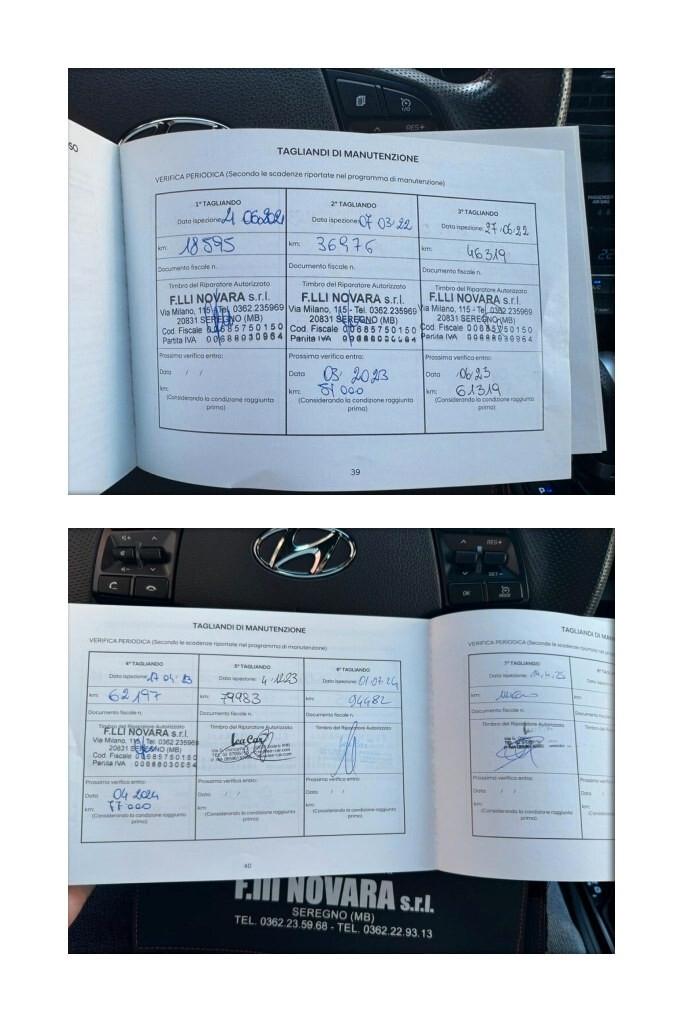 RES+
I/O
SO
PASSENGER
AIR BAG
22
TAGLIANDI DI MANUTENZIONE
VERIFICA PERIODICA (Secondo le scadenze riportate nel programma di manutenzione)
1° TAGLIANDO
Data ispezione: 21 06 2021
km: 18595
Documento fiscale n.
Timbro del Riparatore Autorizzato
F.LLI NOVARA s.r.l.
Via Milano, 115 - Tel. 0362.235969
20831 SEREGNO (MB)
Cod. Fiscale 00685750150
Partita IVA 00688030964
Prossima verifica entro:
Data / /
km:
(Considerando la condizione raggiunta
prima)
2° TAGLIANDO
Data ispezione: 07 03 22
km: 36976
Documento fiscale n.
Timbro del Riparatore Autorizzato
F.LLI NOVARA s.r.l.
Via Milano, 115 - Tel. 0362.235969
20831 SEREGNO (MB)
Cod. Fiscale 00685750150
Partita IVA
Prossima verifica entro:
Data 03 2023
km: 57 000
(Considerando la condizione raggiunta
prima)
3° TAGLIANDO
Data ispezione: 27.06.22
km: 46319
Documento fiscale n.
Timbro del Riparatore Autorizzato
F.LLI NOVARA s.r.l.
Via Milano, 115 - Tel. 0362.235969
20831 SEREGNO (MB)
Cod. Fiscale 00685750150
Partita IVA 00688030964
Prossima verifica entro:
Data 06/23
km: 61319
(Considerando la condizione raggiunta
prima)
39
RES+
SET-
OK
MODE
TAGLIANDI DI MANUTENZIONE
VERIFICA PERIODICA (Secondo le scadenze riportate nel programma di manutenzione)
4° TAGLIANDO
Data ispezione: 17 04 23
km: 62197
Documento fiscale n.
Timbro del Riparatore Autorizzato
F.LLI NOVARA s.r.l.
Via Milano, 115 - Tel. 0362.235969
20831 SEREGNO (MB)
Cod. Fiscale 00685750150
Partita IVA 00688030964
Prossima verifica entro:
Data 04 2024
km: 77 000
(Considerando la condizione raggiunta
prima)
5° TAGLIANDO
Data ispezione: 4.12.23
km: 79983
Documento fiscale n.
Timbro del Riparatore Autorizzato
Prossima verifica entro:
Data / /
km:
(Considerando la condizione raggiunta
prima)
6° TAGLIANDO
Data ispezione: 01.07.24
km: 94482
Documento fiscale n.
Timbro del Riparatore Autorizzato
Prossima verifica entro:
Data / /
km:
(Considerando la condizione raggiunta
prima)
40
TAGLIANDI DI
VERIFICA PERIODICA (Secondo le scadenze riportate nel
7° TAGLIANDO
Data ispezione:
km:
Documento fiscale n.
Timbro del Riparatore Autorizzato
Prossima verifica entro:
Data / /
km:
(Considerando la condizione raggiunta
prima)
F.lli NOVARA s.r.l.
SEREGNO (MB)
TEL. 0362.23.59.68 - TEL. 0362.22.93.13